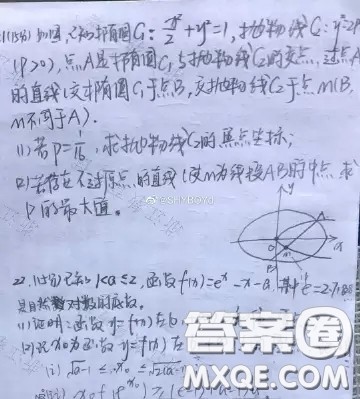 (15分)如图,已知椭圆C₁: x²/2+y²=1,抛物线C₂: y²=2p
(p>0),点A是椭圆C₁与抛物线C₂的交点,过点A
的直线l交椭圆C₁于点B,交抛物线C₂于点M(B,
M不同于A).
(1)若p=1/16,求抛物线C₂的焦点坐标;
(2)若存在不过原点的直线l使M为线段AB的中点,求
p的最大值。
@SHNBOYJ
y
A
x
B
22.(15分)已知1<a≤2,函数f(x)=eˣ-x-a,其中e=2.718
是自然对数的底数.
(1)证明:函数y=f(x)在(0
(2)记x₀为函数y=f(x)在
(i) √(a-1) ≤ x₀ ≤ √(2(a-1)
x₀f(e^x₀)≥(e-1)(a-1)
答案圈
MXQE.COM